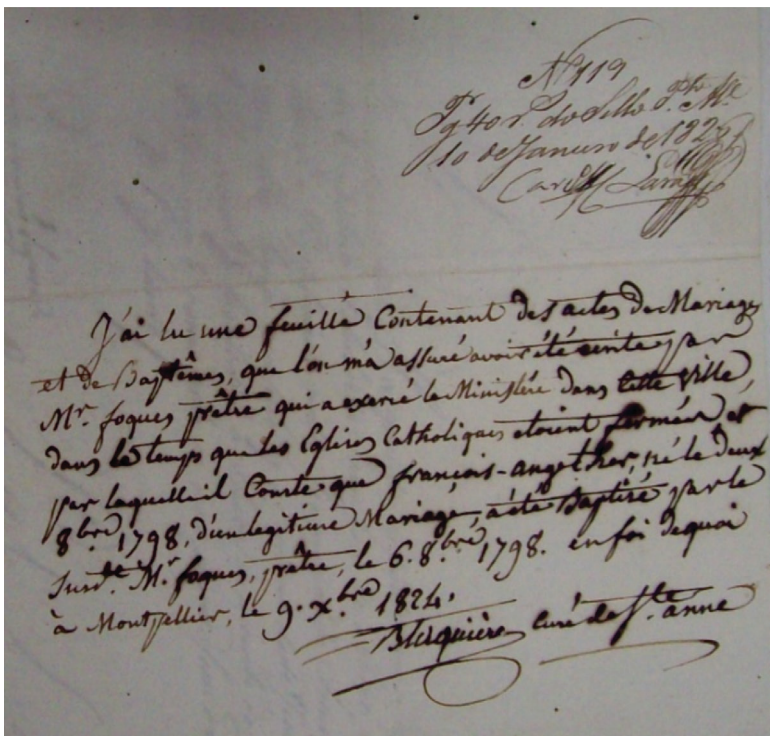 Nº 119
Pg 40 r. do Sello
10 de Janeiro de 182
J'ai lu une feuille Contenant des actes de Mariages
et de Baptêmes, que l'on m'a assuré avoir été écrite par
Mr. foques prêtre qui a exercé le Ministère dans cette ville,
dans le temps que les Eglises Catholiques étoient fermées et
par laquelle il Conste que françois-ange ther, né le deux
8bre 1798, d'un legitime Mariage, a été Baptisé par le
susdt. Mr. foques, prêtre, le 6. 8bre 1798. en foi de quoi
à Montpellier, le 9. xbre 1824.
curé de Ste. anne